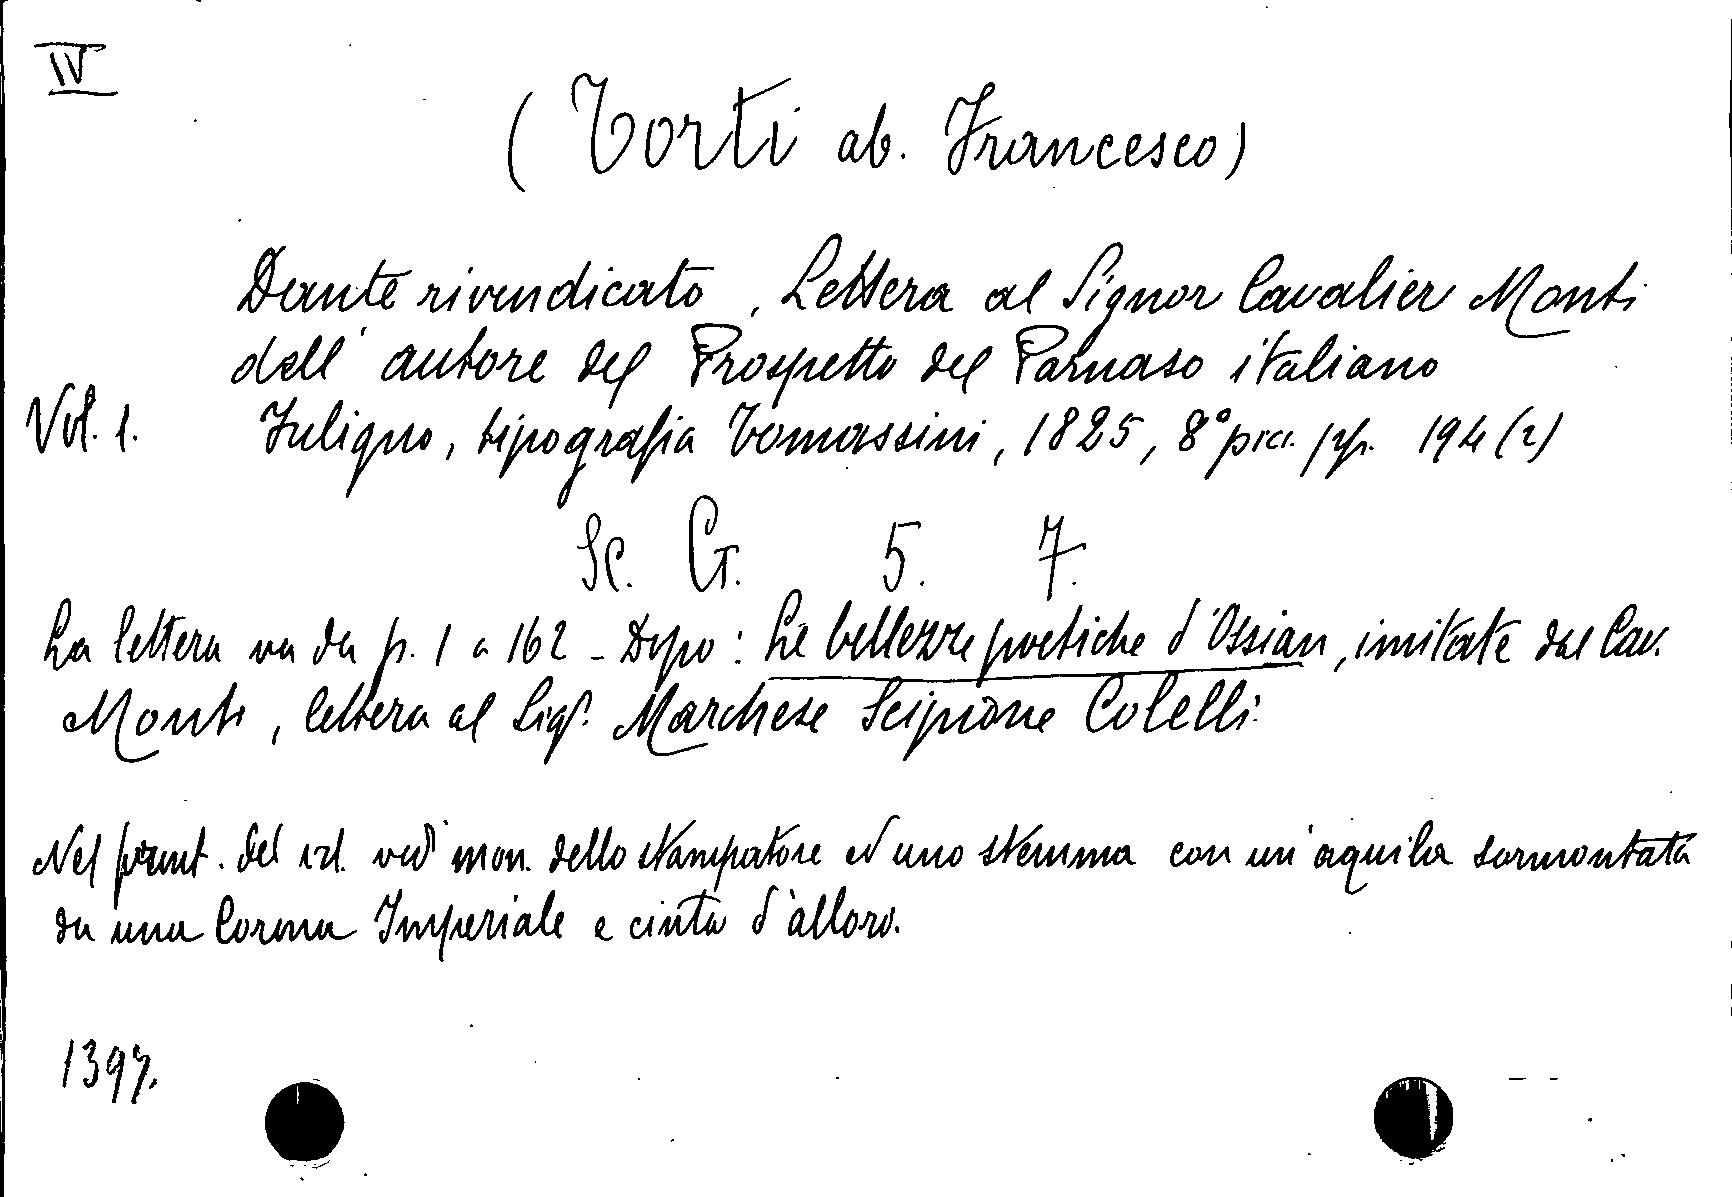 IV
(Torti ab. Francesco)
Dante rivendicato, Lettera al Signor Cavalier Monti
dell'autore del Prospetto del Parnaso italiano
Vol. 1. Fuligno, tipografia Tomassini, 1825, 8° picc. pp. 194 (2)
Sc. G. 5. 7.
La lettera va da p. 1 a 162 - Dopo: Le bellezze poetiche d'Ossian, imitate dal Cav.
Monti, lettera al Sigr. Marchese Scipione Colelli.
Nel front. del vol. ved' mon. dello stampatore ed uno stemma con un'aquila sormontata
da una Corona Imperiale e cinta d'alloro.
1397.